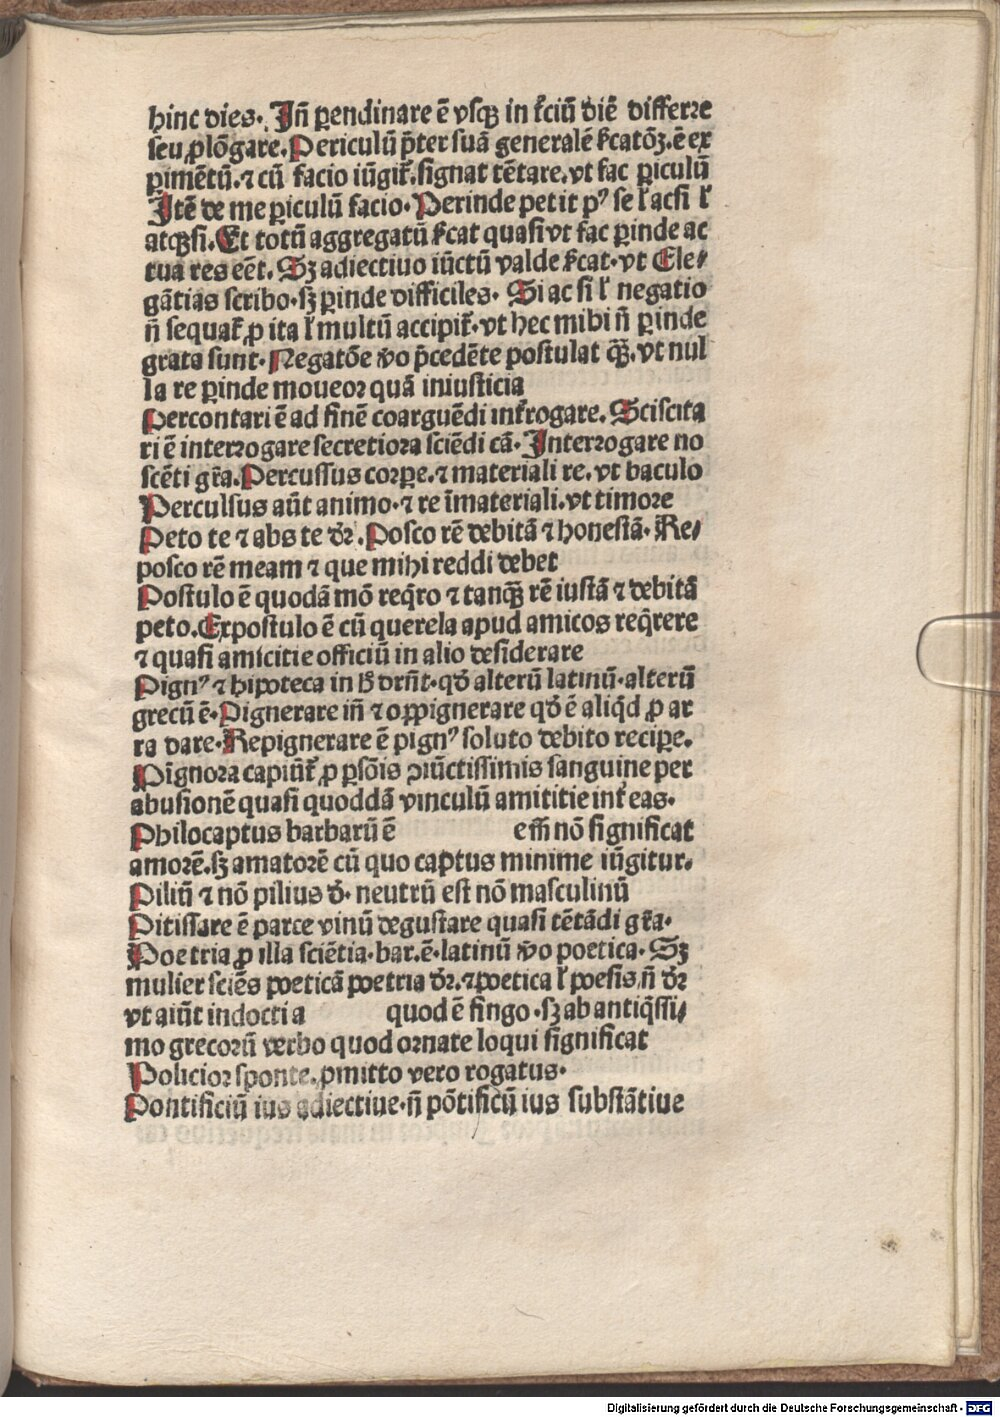 hinc dies. Jn̄ ꝑendinare ē vsqꝫ in t̄ciū diē differre
seu ꝓlōgare. Periculū p̄ter suā generalē s̄catōꝫ. ē ex
ꝑimētū. ⁊ cū facio iūgit̄. signat tētare. vt fac ꝑiculū
Jtē de me ꝑiculū facio. Perinde petit pꝰ se ł acsi ł
atqꝫsi. Et totū aggregatū s̄cat quasi vt fac ꝑinde ac
tua res eēt. Sꝫ adiectiuo iūctū valde s̄cat. vt Ele⸗
gātias scribo. sꝫ ꝑinde difficiles. Si ac si ł negatio
n̄ sequat̄ ꝓ ita ł multū accipit̄. vt hec mihi n̄ ꝑinde
grata sunt. Negatōe v̄o p̄cedēte postulat qꝫ̄. vt nul
la re ꝑinde moueor quā iniusticia
Percontari ē ad finē coarguēdi int̄rogare. Sciscita
ri ē interrogare secretiora sciēdi cā. Jnterrogare no
scēti gr̄a. Percussus corꝑe. ⁊ materiali re. vt baculo
Perculsus aūt animo. ⁊ re īmateriali. vt timore
Peto te ⁊ abs te dr̄. Posco rē debitā ⁊ honestā. Re⸗
posco rē meam ⁊ que mihi reddi debet
Postulo ē quodā mō req̄ro ⁊ tanqꝫ̄ rē iustā ⁊ debitā
peto. Expostulo ē cū querela apud amicos req̄rere
⁊ quasi amicitie officiū in alio desiderare
Pignꝰ ⁊ hipoteca in h̄ drn̄t. qd̄ alterū latinū. alterū
grecū ē. Pignerare in̄ ⁊ oꝑpignerare qd̄ ē aliq̄d ꝓ ar
ra dare. Repignerare ē pignꝰ soluto debito reciꝑe.
Pignora capiūt̄ ꝓ ꝑsōis ↄiūctissimis sanguine per
abusionē quasi quoddā vinculū amititie int̄ eas.
Philocaptus barbarū ē em̄ nō significat
amorē. sꝫ amatorē cū quo captus minime iūgitur.
Piliū ⁊ nō pilius d̄. neutrū est nō masculinū
Pitissare ē parce vinū degustare quasi tētādi gr̄a.
Poetria ꝓ illa sciētia. bar. ē. latinū v̄o poetica. Sꝫ
mulier sciēs poeticā poetria dr̄. ⁊ poetica ł poesis n̄ dr̄
vt aiūt indocti a quod ē fingo. sꝫ ab antiq̄ssi⸗
mo grecorū verbo quod ornate loqui significat
Policior sponte. ꝓmitto vero rogatus.
Pontificiū ius adiectiue. n̄ pōtificū ius substātiue
Digitalisierung gefördert durch die Deutsche Forschungsgemeinschaft - DFG